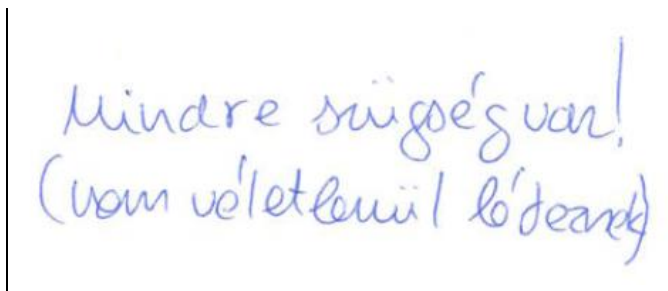 Mindre szügség van!
(nem véletlenül léteznek)